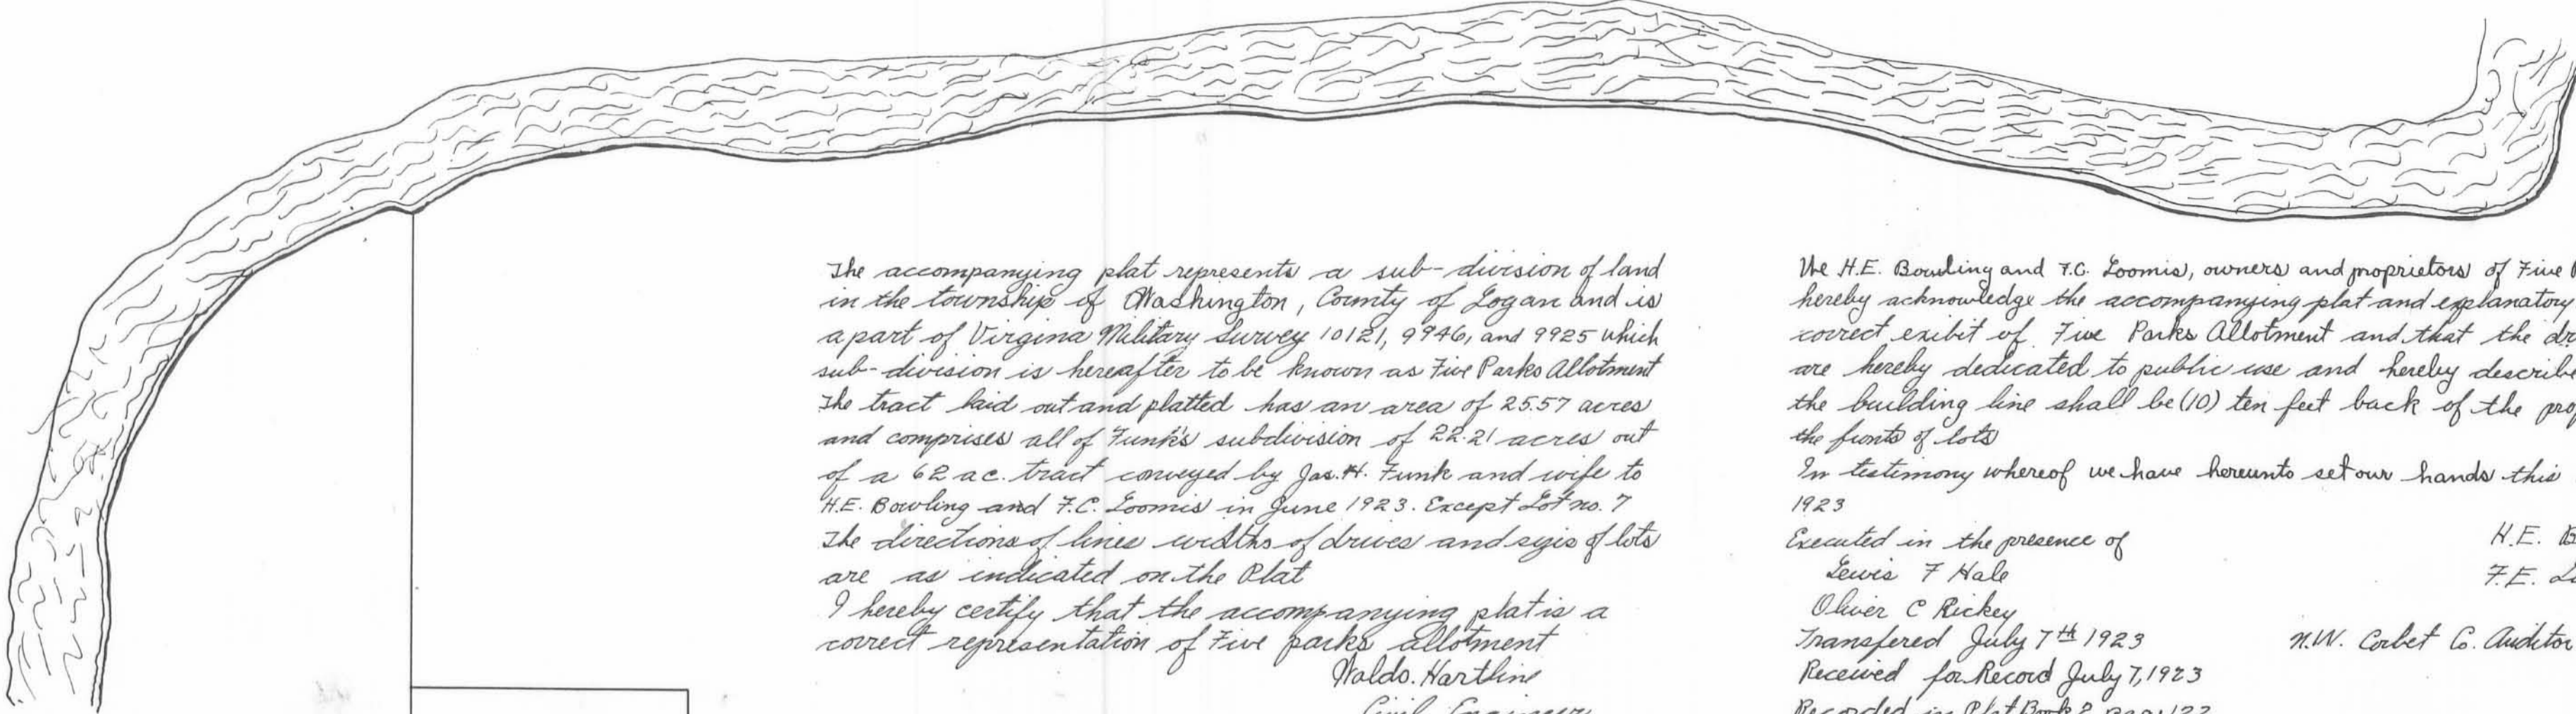 The accompanying plat represents a sub-division of land
in the township of Washington, County of Logan and is
a part of Virgina Military Survey 10121, 9946, and 9925 which
sub-division is hereafter to be known as Five Parks Allotment
The tract laid out and platted has an area of 25.57 acres
and comprises all of Funk's subdivision of 22.21 acres out
of a 62 ac. tract conveyed by Jas. H. Funk and wife to
H.E. Bowling and F.C. Loomis in June 1923. Except Lot no. 7
The directions of lines widths of drives and sizis of lots
are as indicated on the Plat
I hereby certify that the accompanying plat is a
correct representation of Five parks allotment
Waldo. Hartline
Civil Engineer
We H.E. Bowling and F.C. Loomis, owners and proprietors of Five P
hereby acknowledge the accompanying plat and explanatory
correct exibit of Five Parks Allotment and that the dr
are hereby dedicated to public use and hereby describe
the building line shall be (10) ten feet back of the pro
the fronts of lots
In testimony whereof we have hereunto set our hands this
1923
Executed in the presence of
H.E. B
Lewis F Hale
F.E. Lo
Oliver C Rickey
Transfered July 7th 1923 N.W. Corbet Co. Auditor
Received for Record July 7, 1923
Recorded in Plat Book 2